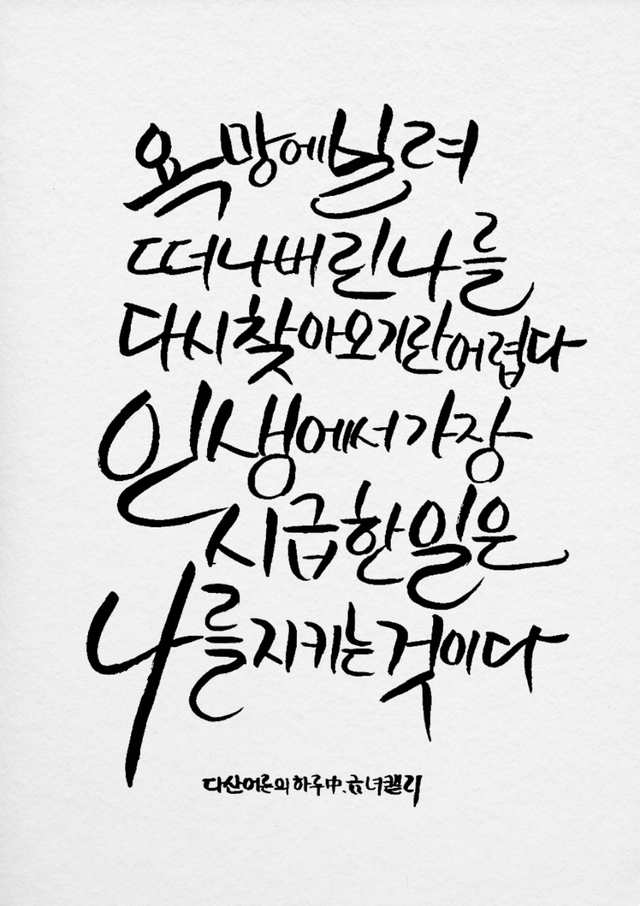 욕망에 날려
떠나버린 나를
다시 찾아오기란 어렵다
인생에서 가장
시급한 일은
나를 지키는 것이다
다산어른의 하루 中. 캘리